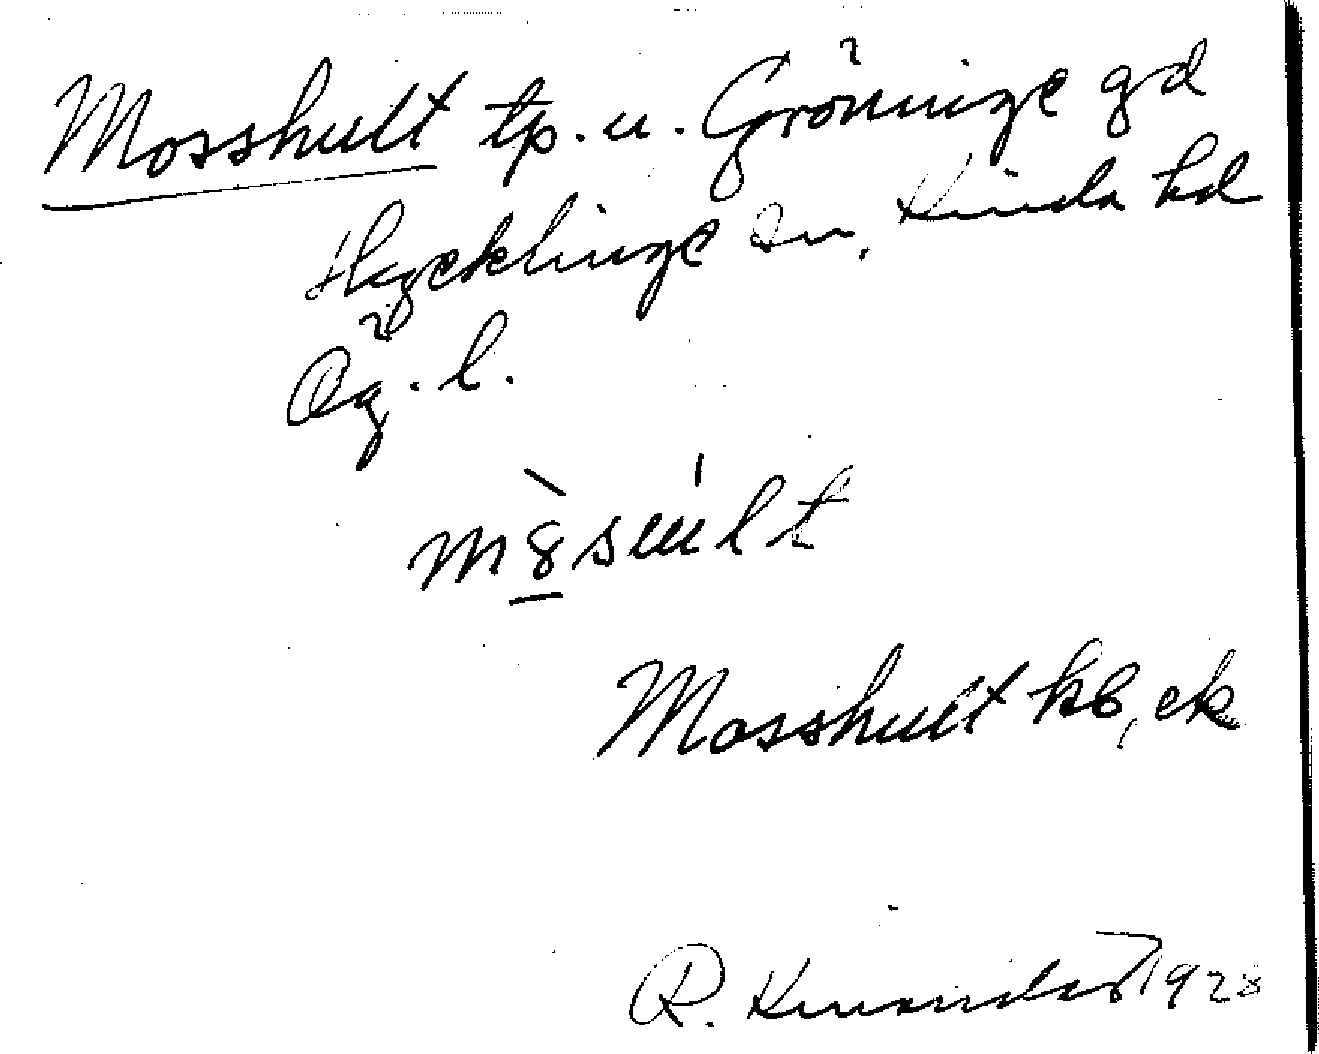 Mosshult tp. u. Gröninge gd
Hycklinge sn, Kinda hd
Ög. l.
m8̀sult
Mosshult kb, ek
R. 1928